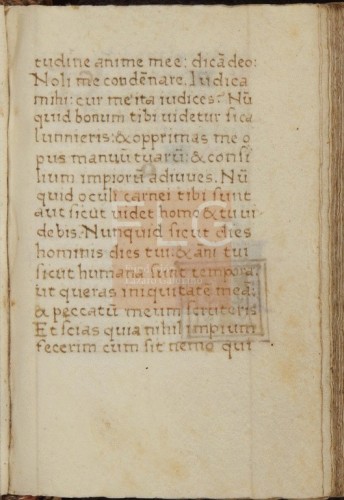 tudine anime mee: dicā deo:
Noli me condēnare. Iudica
mihi: cur me ita iudices. Nū
quid bonum tibi uidetur si ca
lunnieris: & opprimas me o
pus manuū tuarū: & consi
lium impiorū adiuues. Nū
quid oculi carnei tibi sunt
aut sicut uidet homo & tu ui
debis. Nunquid sicut dies
hominis dies tui: & ani tui
sicut humana sunt tempora?
ut queras iniquitatē meā:
& peccatū meum scrutoris
Et scias quia nihil impium
fecerim cum sit nemo qui